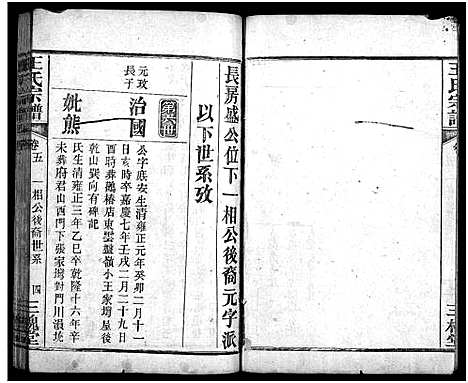 王氏宗譜
長房盛公位下一相公後裔元字派
以下世系攷
第六世
元攻
長子
治國
公字底安生清雍正元年癸卯二月十一
日亥時卒嘉慶七年壬戌二月二十九日
酉時葬鎚椿店東雲盤嶺小王家塆屋後
乾山巽向有碑記
妣熊
氏生清雍正三年乙巳卒乾隆十六年辛
未葬府君山西門下張家塆對門川浪坨
王氏宗譜
卷五
一相公後裔世系
四
三槐堂